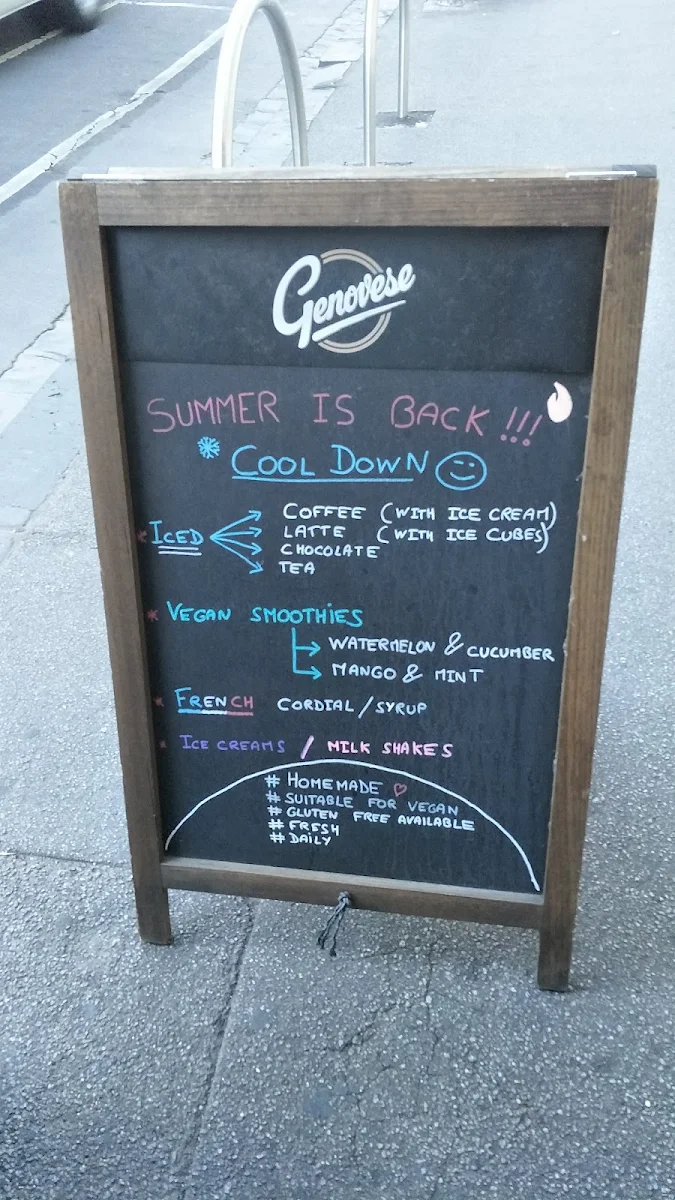 Genovese
SUMMER IS BACK !!!
COOL DOWN
* ICED
COFFEE (WITH ICE CREAM)
LATTE (WITH ICE CUBES)
CHOCOLATE
TEA
* VEGAN SMOOTHIES
WATERMELON & CUCUMBER
MANGO & MINT
* FRENCH CORDIAL / SYRUP
* ICE CREAMS / MILK SHAKES
# HOMEMADE ♡
# SUITABLE FOR VEGAN
# GLUTEN FREE AVAILABLE
# FRESH
# DAILY